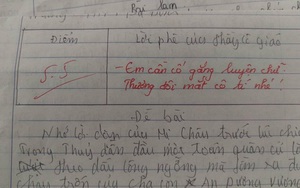 Bài làm
Điểm
Lời phê của thầy cô giáo
5.5
- Em cần cố gắng luyện chữ.
Thương đôi mắt cô tí nhé
Đề bài
Nhớ lời dặn của Mị Châu trước lúc chia
Trọng Thuỷ dẫn đầu một toán quân cứ lần
theo dấu lông ngỗng mà tìm ra
cha con An Dương Vương